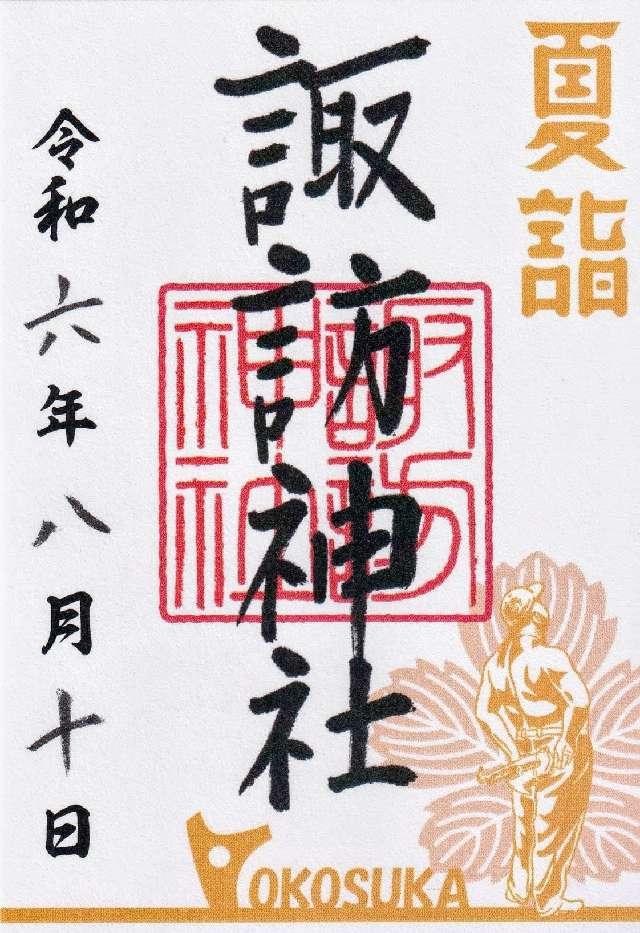 夏詣
諏訪神社
諏訪神社
令和六年八月十日
YOKOSUKA